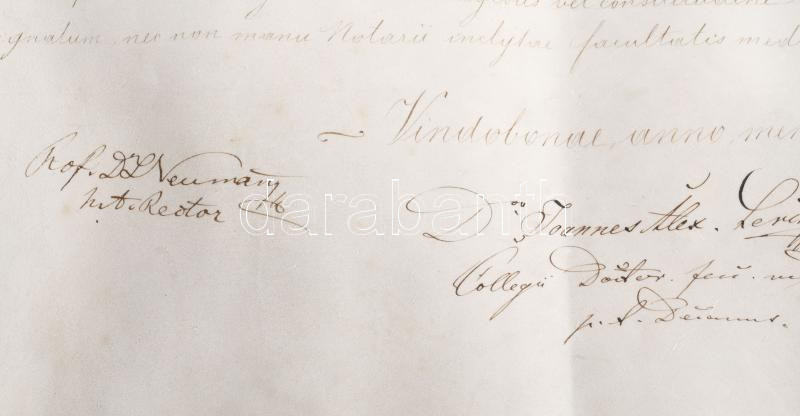 vel consuetudine
gnatum, nec non manu Notarii inclytae facultatis med
Vindobonae, anno, men
Prof. Dr L Neumann
h. t. Rector
Dr. Joannes Alex.
Collegii Doctor. fac. m
p. t. Decanus.
darabanth